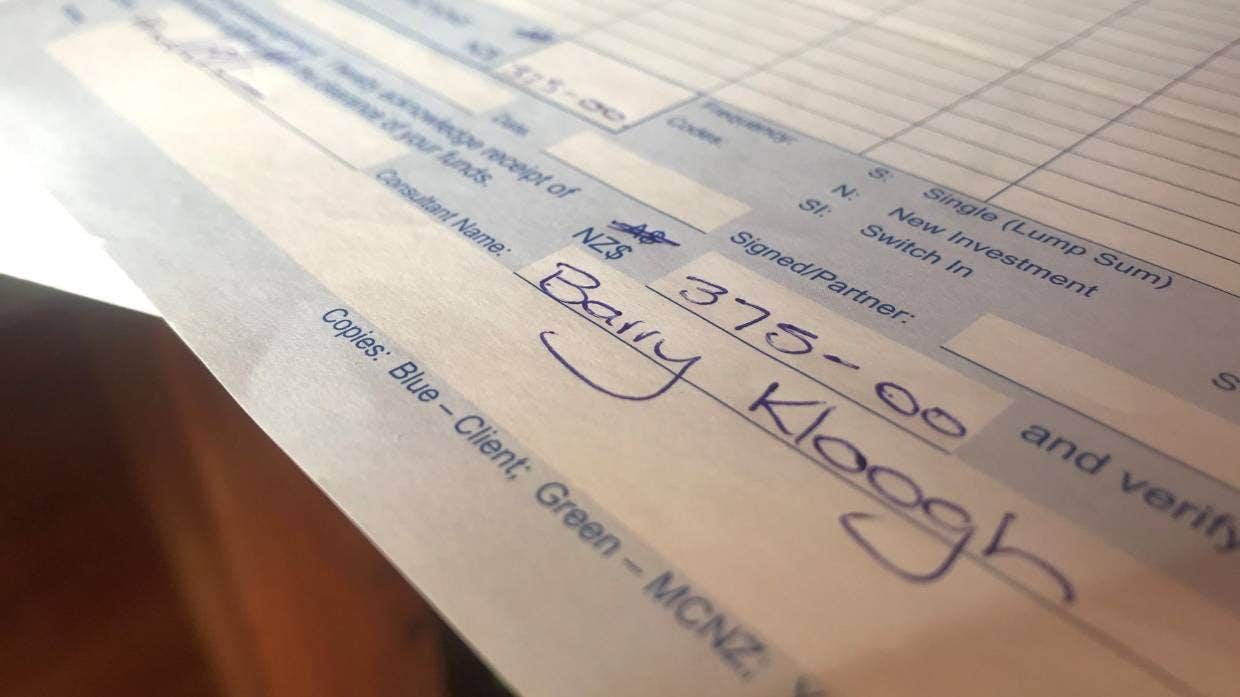 NZ$ 525-00
Date
Frequency: S: Single (Lump Sum)
Codes N: New Investment
SI: Switch In
hereby acknowledge receipt of NZ$ 375-00 and verify
the purpose of your funds.
Signed/Partner:
Consultant Name: Barry Kloogh
Copies: Blue – Client; Green – MCNZ;